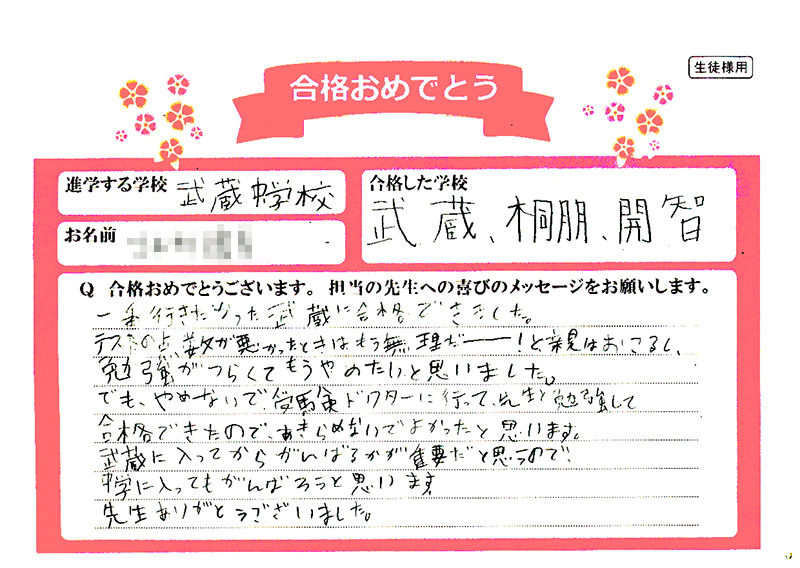 生徒様用
合格おめでとう
進学する学校 武蔵中学校
合格した学校
武蔵、桐朋、開智
お名前
Q 合格おめでとうございます。担当の先生への喜びのメッセージをお願いします。
一番行きたかった武蔵に合格できました。
テストの点数が悪かったときはもう無理だー!と親はおこるし、
勉強がつらくてもうやめたいと思いました。
でも、やめないで、受験ドクターに行って、先生と勉強して
合格できたので、あきらめないでよかったと思います。
武蔵に入ってからがんばるかが重要だと思うので
中学に入ってもがんばろうと思います
先生ありがとうございました。